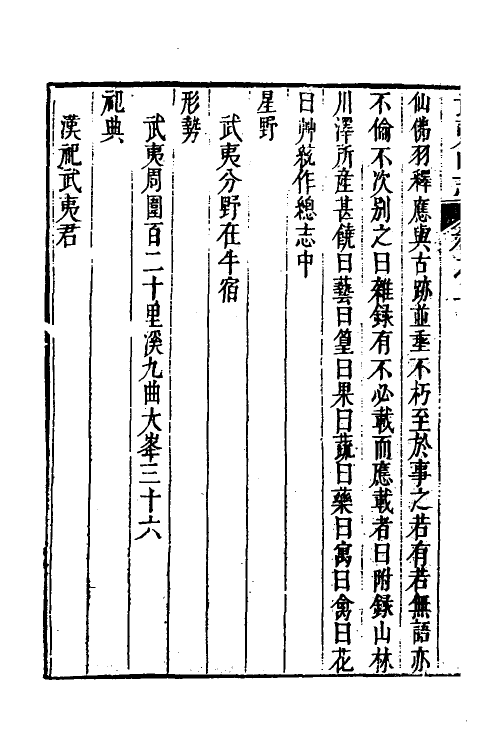 仙佛羽釋應與古跡並垂不朽至於事之若有若無語亦
不倫不次別之曰雜録有不必載而應載者曰附録山林
川澤所産甚饒曰藝曰篁曰果曰蔬曰藥曰寓曰禽曰花
曰艸統作總志中
星野
武夷分野在牛宿
形勢
武夷周圍百二十里溪九曲大峯三十六
祀典
漢祀武夷君